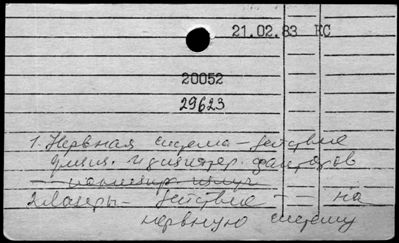 21.02.83 КС
20052
29623
1. Нервная система – действие
физич. и физиотер. факторов
2. Лазеры – действие – на
нервную систему